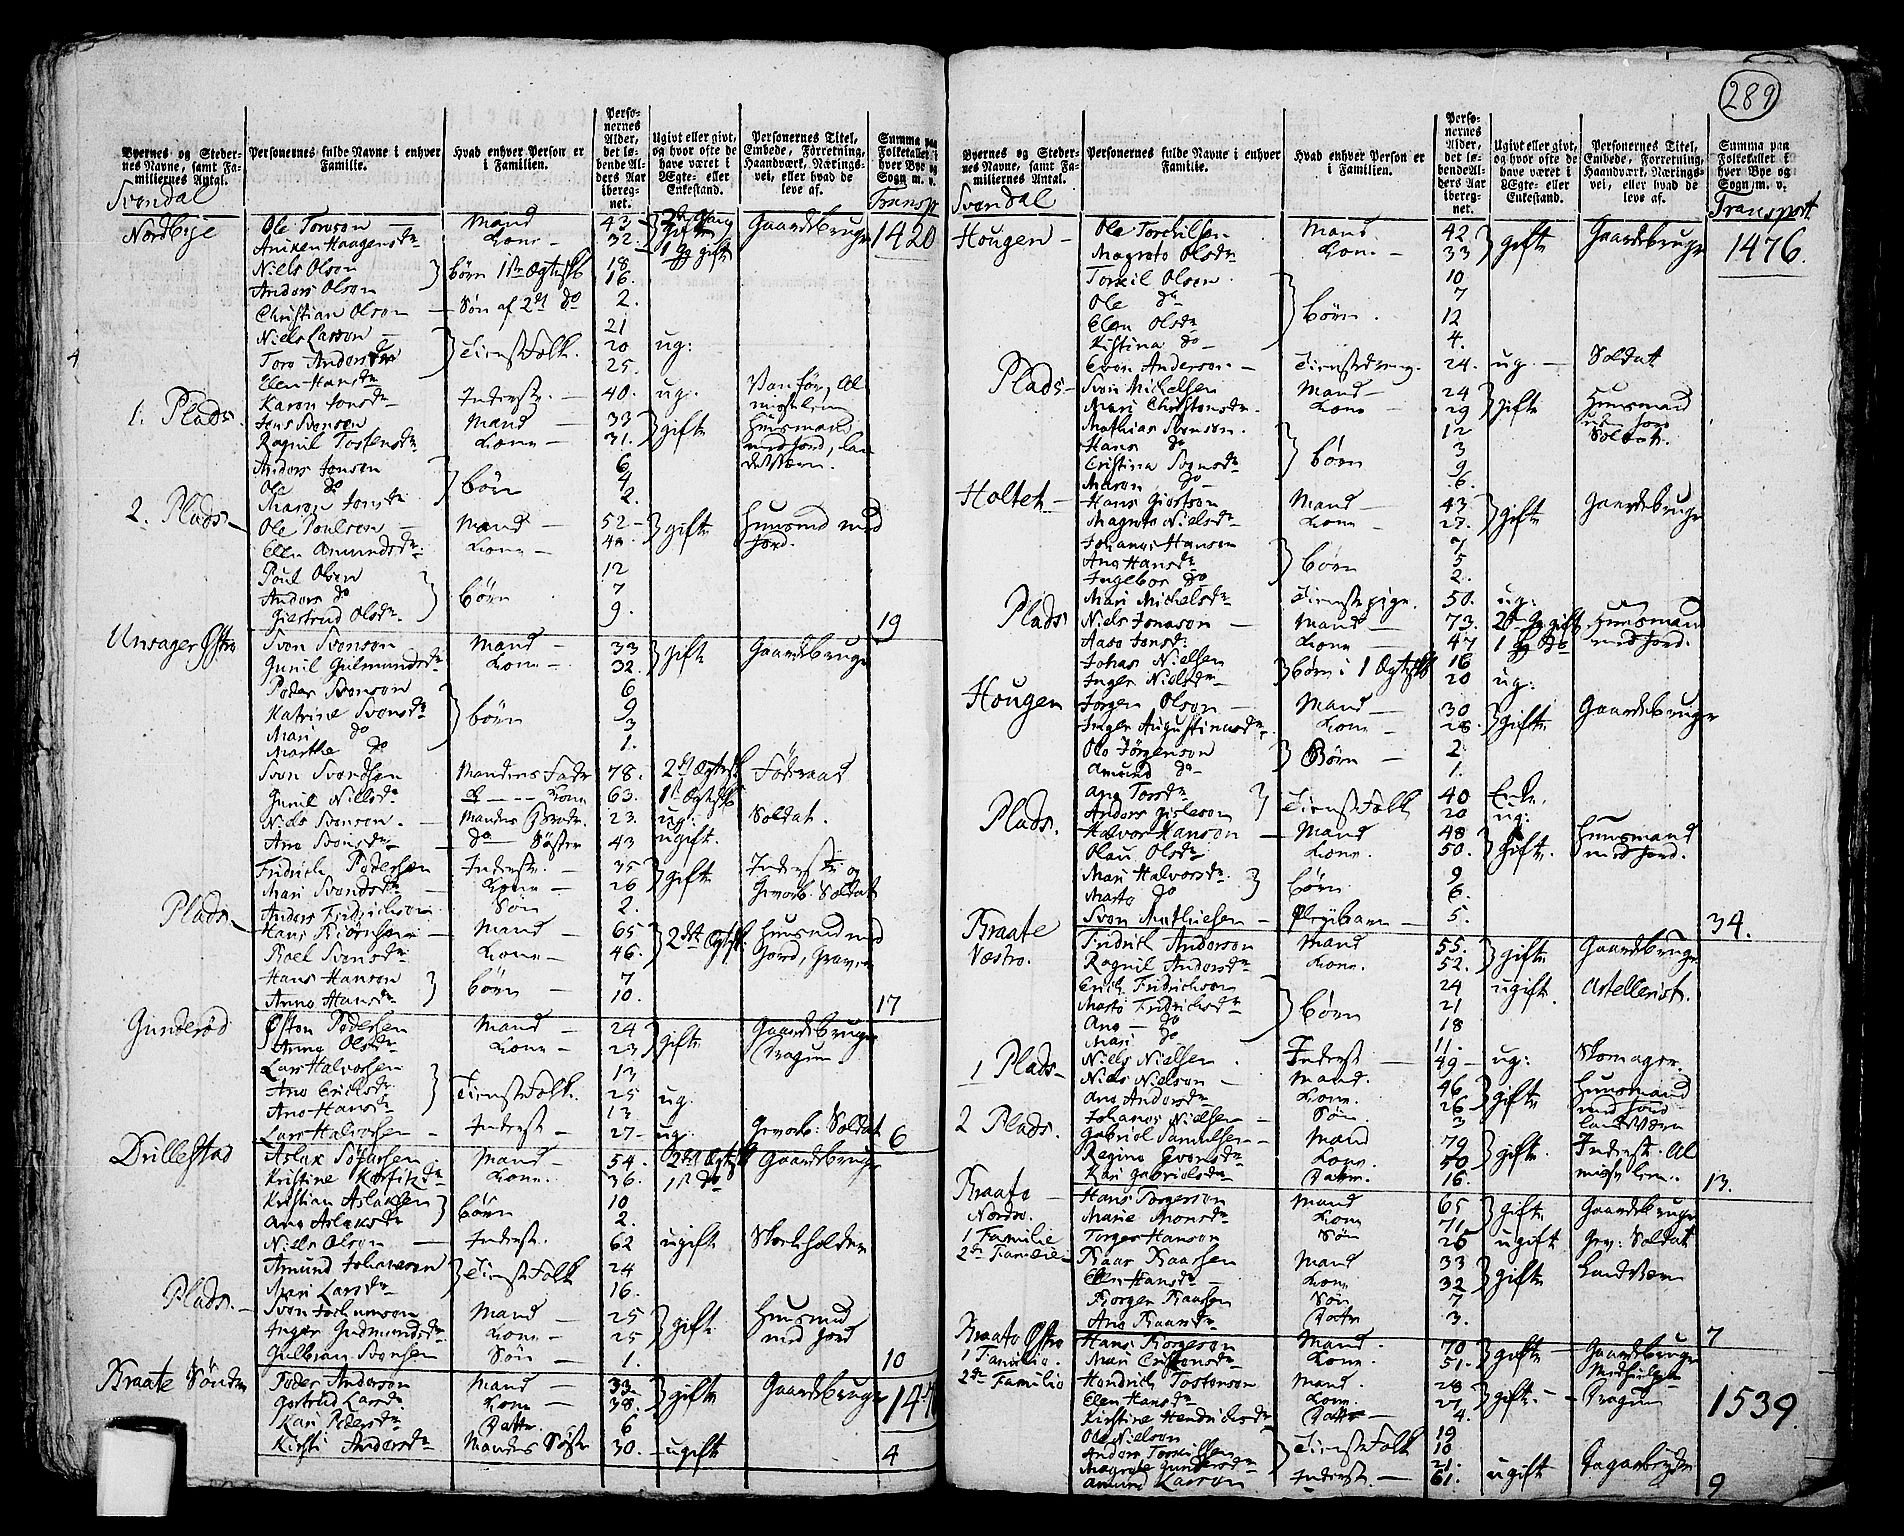 289
Byernes og Steder-
nes Navne, samt Fa-
miliernes Antal.
Personernes fulde Navne i enhver
Familie.
Hvad enhver Person er
i Familien.
Perso-
nernes
Alder,
det lø-
bende Al-
ders Aar
ibereg-
net.
Ugivt eller givt,
og hvor ofte de
have været i
Ægte- eller
Enkestand.
Personernes Titel,
Embede, Forretning,
Haandværk, Nærings-
vei, eller hvad de
leve af.
Summa paa
Folketallet i
hver Bye og
Sogn m. v.
Svendal
Transp
Nordbye Ole Mand 43 2den Gang gift Gaardbruger 1420
Aniken Haagensdr Kone 32 1 G gift
Niels Olsen børn 1ste Ægtesk 18
Anders Olsen 16
Christian Olsen Søn af 2det do 2
Niels Larsen TienesteFolk 21 ug:
Anders 20
Elen Hansdr 25
Karen Jonsdr Inderste 40 ug. Vanfør, Al
1. Plads Jens Svensen Mand 33 gift Huusmand
Ragnil Tostensdr Kone 31 med jord, Lan
Anders Jensen børn 6 dsværn
Ole do 4
Maren Jensdr 2
2. Plads Ole Poulsen Mand 52 gift Huusmd med
Elen Amundsdr Kone jord.
Poul Olsen børn 12
Anders do 7
Giertrud Olsdr 9 19
Unsager Østre Sven Svensen Mand 33 gift Gaardbruger
Gunil Gulmundsdr Kone 32
Peder Svensen børn 6
Katrine Svensdr 9
Mari do 3
Marthe do 1
Sven Svendsen Mandens Fader 78 2det Ægtesk Føderaad
Gunil Nielsdr D Kone 63 1ste Ægtesk
Niels Svensen Mandens Broder 23 ug: Soldat
Ane Svensdr do Søster 43 ugift
Fridrich Pedersen Inderste 35 gift Inderste og
Mari Svendsdr Kone 26 Gevorb: Soldat
Anders Fridrichsen Søn 2
Plads Hans Biørnsen Mand 65 2det Ægtsk Huusmd med
Svensdr Kone 46 Jord, Graver
Hans Hansen børn 7
Anne Hansdr 10 17
Gunderød Østen Pedersen Mand 24 gift Gaardbruger
Anne Olsdr Kone 23 Dragun
Lars Halvorsen TienesteFolk 13
Ane Erichsdr 25 ug.
Ane Hansdr 13
Lars Halvorsen Inderste 27 ug. Gevorb: Soldat 6
Drillestad Aslak Mand 54 2det Ægtesk Gaardbruger
Kristine Kone 36 1ste do
Kristian Aslaksen børn 10
Ane Aslaksdr 2
Niels Olsen Inderst. 62 ugift
Amund Johansen TienesteFolk 24
Mari Larsdr 16
Plads Sven Johansen Mand 25 gift Huusmd
Inger Gudmundsdr Kone 25 med jord
Gulbran Svensen Søn 1 10
Kraate Søndre Peder Andersen Mand 33 gift Gaardbruger
Gertrud Larsdr Kone 38
Kari Pedersdr Datter 6
Kirsti Andersdr Mandens Søster 30 ugift 4
Byernes og Steder-
nes Navne, samt Fa-
miliernes Antal.
Personernes fulde Navne i enhver
Familie.
Hvad enhver Person er
i Familien.
Perso-
nernes
Alder,
det lø-
bende Al-
ders Aar
ibereg-
net.
Ugivt eller givt,
og hvor ofte de
have været i
Ægte- eller
Enkestand.
Personernes Titel,
Embede, Forretning,
Haandværk, Nærings-
vei, eller hvad de
leve af.
Summa paa
Folketallet i
hver Bye og
Sogn m. v.
Svendal
Transport
Hougen Ole Torkilsen Mand 42 gift Gaardbruger 1476
Magrete Olsdr Kone 33
Torkil Olsen børn 10
Ole do 7
Elen Olsdr 12
Kistina do 4
Even Andersen Tienestdreng 24 ug Soldat
Plads Sven Michelsen Mand 24 gift Huusmand
Mari Christensdr Kone 29 uden jord
Mathias Svensen børn 12 Soldat
Hans do 3
Cristina Svensdr 9
Maren do 6
Holtet Hans Mand 43 gift Gaardbruger
Magrete Nielsdr Kone
Johanes Hansen børn
Ane Hansdr 5
Ingebor do 2
Mari Michelsdr Tienestepige 50 ug:
Plads Niels Jonasen Mand 73 2den G gift Huusmand
Aase Jensdr Kone 47 1 G do med jord
Johas Nielsen børn i 1 Ægtesk 16
Inger Nielsdr 20 ug:
Hougen Jørgen Olsen Mand 30 gift Gaardbruger
Inger Augustinusdr Kone 28
Ole Jørgensen Børn 2
Amund do 1
Ane Torsdr TienesteFolk 40 Enke
Anders 20 ug:
Plads Halvor Hansen Mand 48 gift Huusmand
Olau Olsdr Kone 50 med jord
Mari Halvorsdr børn 9
Marte do 6
Sven Mathiesen Pleiebarn 5 34.
Kraate Vestre Fridrich Andersen Mand 55 gift Gaardbruger
Ragnil Andersdr Kone 52
Erich Fridrichsen børn 24 ugift Artellerist
Marte Fridrichsdr 21
Ane do 18
Mari do 11
Niels Nielsen Inderst 49 ug: Skomager
1 Plads Niels Nielsen Mand 46 gift Huusmand
Ane Andersdr Kone 26 med jord
Johanes Nielsen Søn 3 Landsværn
2 Plads Gabriel Samuelsen Mand 79 gift Inderst. Al
Regine Evensdr Kone 50
Kari Gabrielsdr Datter 16 13.
Kraate Nordre
1 Familie Hans Torgersen Mand 65 gift Gaardbruger
Marie Monsdr Kone 71
Torger Hansen Søn 26 ugift Gev: Soldat
2den Familie Mand 33 gift Landværn
Elen Hansdr Kone 32
Søn 7
Ane Datter 3 7
Kraate Østre
1 Familie Hans Mand 70 gift Gaardbruger
Mari Cristensdr Kone 51
2den Familie Hendrich Tostensen Mand 28 gift Dragun 1539
Elen Hansdr Kone 27
Kirstine Hendrichsdr Datter 4
Ole Nielsen TienesteFolk 19
Anders Torkilsen 10
Magrete Gundersdr 21
Amund Larsen Inderst 61 ugift Dagarbeyder 9